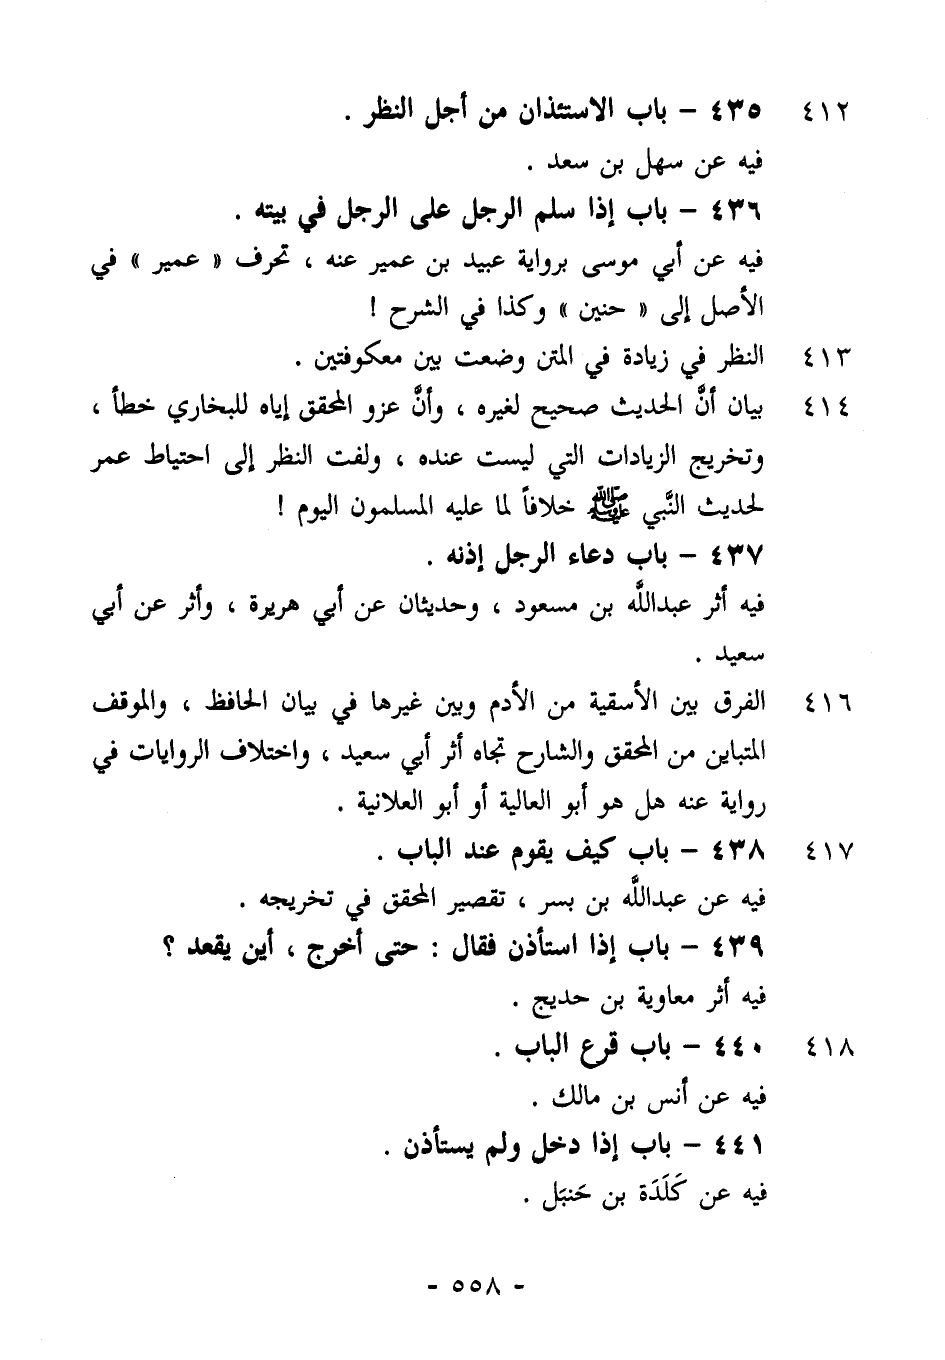 ٤١٢ ٤٣٥ – باب الاستئذان من أجل النظر .
فيه عن سهل بن سعد .
٤٣٦ – باب إذا سلم الرجل على الرجل في بيته .
فيه عن أبي موسى برواية عبيد بن عمير عنه ، تحرف « عمير » في
الأصل إلى « حنين » وكذا في الشرح !
٤١٣ النظر في زيادة في المتن وضعت بين معكوفتين .
٤١٤ بيان أنَّ الحديث صحيح لغيره ، وأنَّ عزو المحقق إياه للبخاري خطأ ،
وتخريج الزيادات التي ليست عنده ، ولفت النظر إلى احتياط عمر
لحديث النَّبي ﷺ خلافاً لما عليه المسلمون اليوم !
٤٣٧ – باب دعاء الرجل إذنه .
فيه أثر عبداللَّه بن مسعود ، وحديثان عن أبي هريرة ، وأثر عن أبي
سعيد .
٤١٦ الفرق بين الأسقية من الأدم وبين غيرها في بيان الحافظ ، والموقف
المتباين من المحقق والشارح تجاه أثر أبي سعيد ، واختلاف الروايات في
رواية عنه هل هو أبو العالية أو أبو العلانية .
٤١٧ ٤٣٨ – باب كيف يقوم عند الباب .
فيه عن عبداللَّه بن بسر ، تقصير المحقق في تخريجه .
٤٣٩ – باب إذا استأذن فقال : حتى أخرج ، أين يقعد ؟
فيه أثر معاوية بن حديج .
٤١٨ ٤٤٠ – باب قرع الباب .
فيه عن أنس بن مالك .
٤٤١ – باب إذا دخل ولم يستأذن .
فيه عن كَلَدَة بن حَنبَل .
- ٥٥٨ -